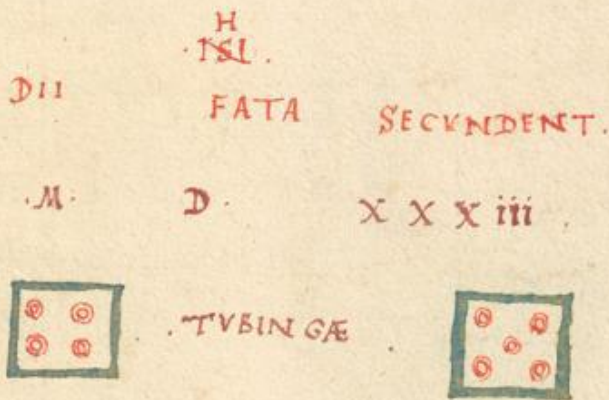 H
. NSI .
DII FATA SECVNDENT.
.M. D. X X X iii .
. TVBINGÆ .